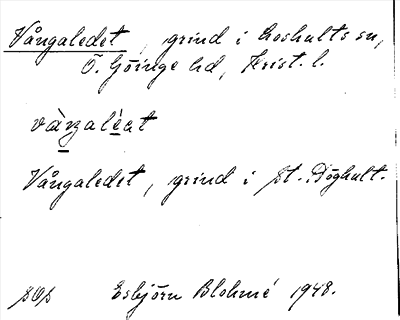 Vångaledet, grind i Loshults sn,
Ö. Göinge hd, Krist. l.
vàŋaléat
Vångaledet, grind i St. Döghult.
Esbjörn Blohmé 1948.